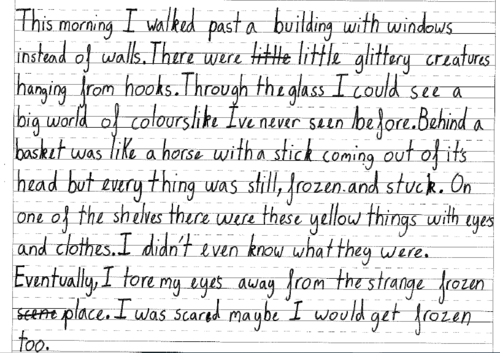 This morning I walked past a building with windows
instead of walls. There were little little glittery creatures
hanging from hooks. Through the glass I could see a
big world of colours like I've never seen before. Behind a
basket was like a horse with a stick coming out of it's
head but every thing was still, frozen. and stuck. On
one of the shelves there were these yellow things with eyes
and clothes. I didn't even know what they were.
Eventually, I tore my eyes away from the strange frozen
scene place. I was scared maybe I would get frozen
too.